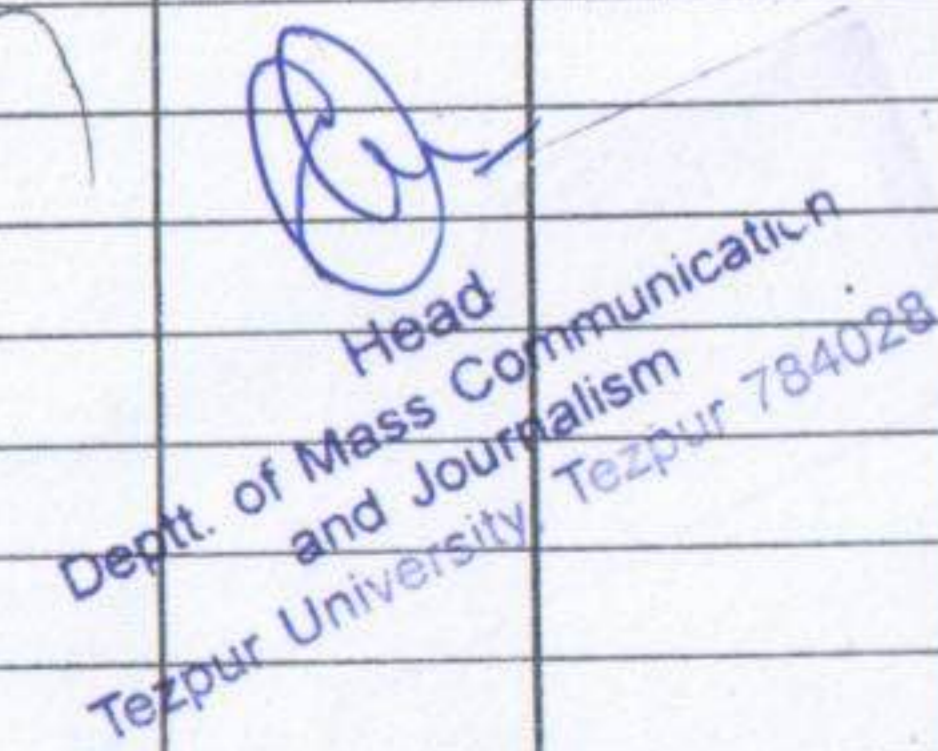 Head
Deptt. of Mass Communication
and Journalism
Tezpur University, Tezpur 784028